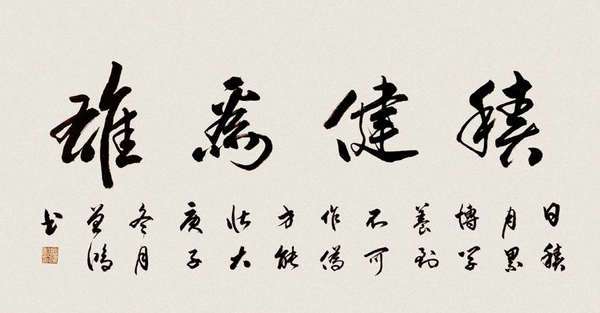 積健為雄
日積
月累
博学
養到
不可
作偽
方能
壯大
庚子
冬月
鴻
书